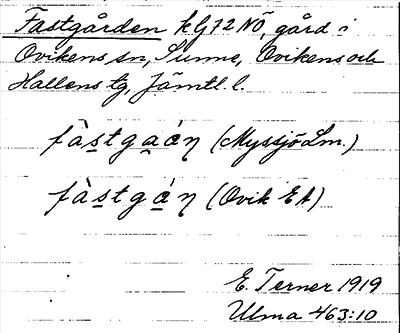 Fastgården kG72NÖ, gård i
Ovikens sn, Sunne, Ovikens och
Hallens tg, Jämtl. l.
(Myssjö Lm.)
(Ovik EA)
E. Terner 1919
Ulma 463:10